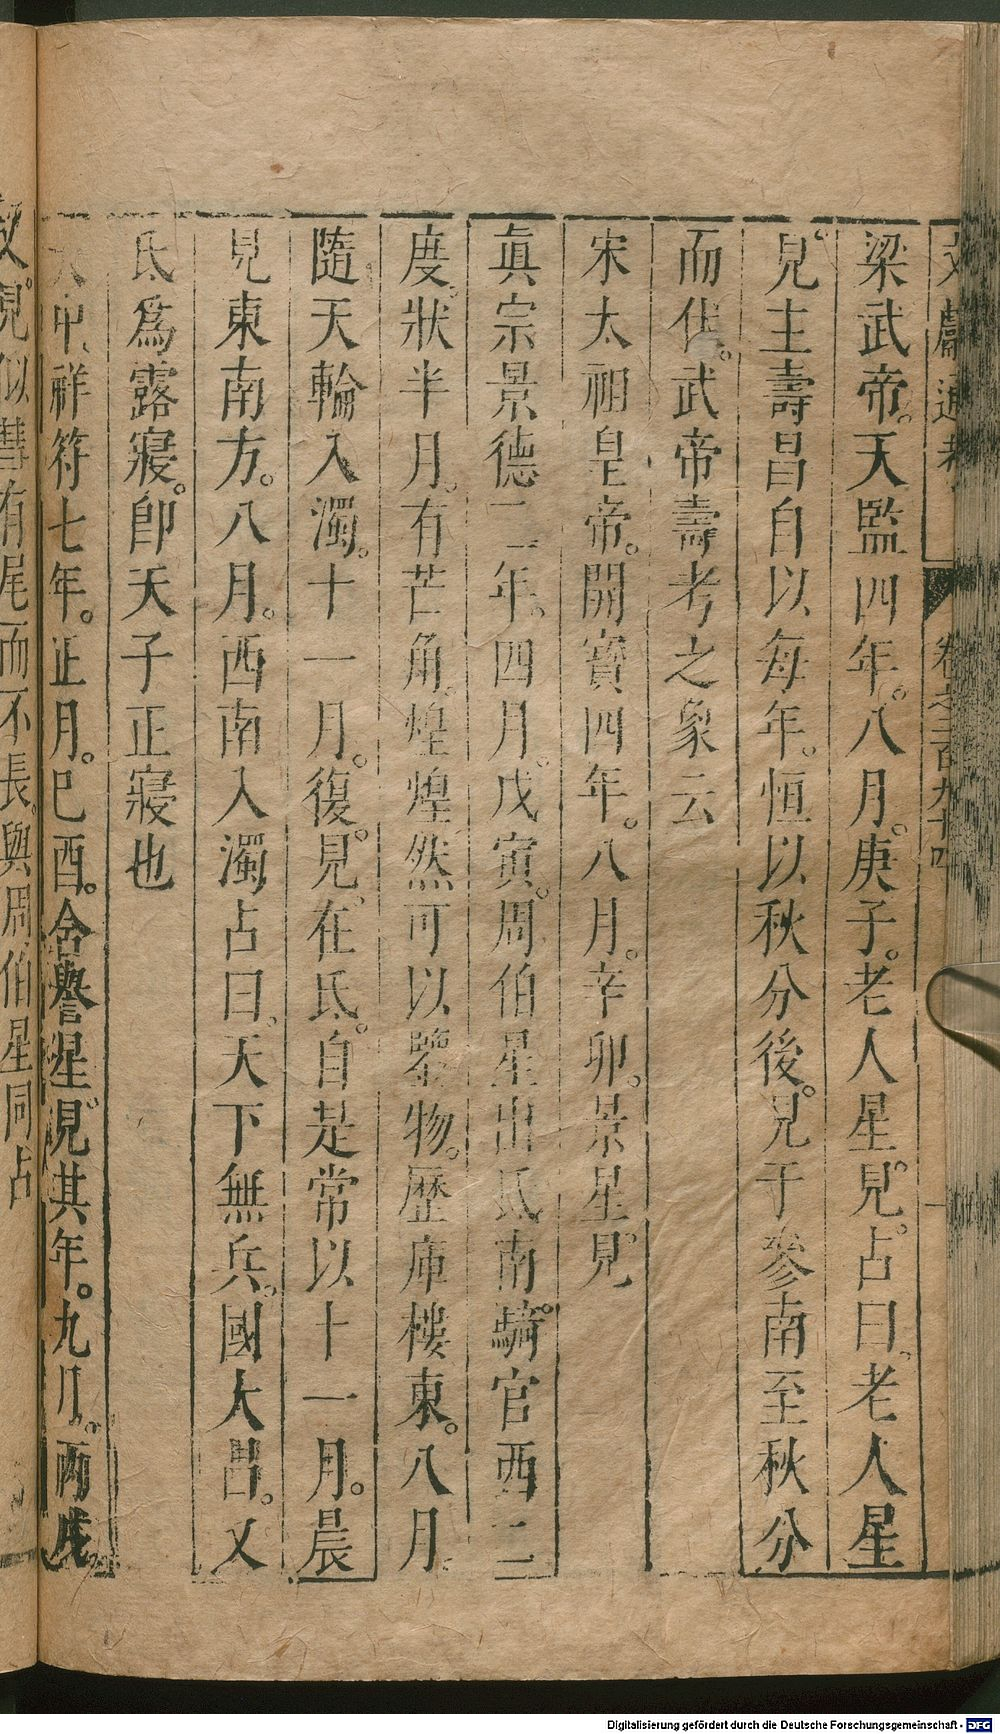 文獻通考 卷之二百九十四
梁武帝。天監四年。八月。庚子。老人星見。占曰。老人星
見。主壽昌自以每年。恒以秋分後。見于參南至秋分
而伏。武帝壽考之象云
宋太祖皇帝。開寶四年。八月。辛卯。景星見。
真宗景德二年。四月。戊寅。周伯星出氐南。騎官西二
度。狀半月。有芒角。煌煌然可以鑒物。歷庫樓東。八月
隨天輪入濁。十一月。復見。在氐。自是常以十一月。晨
見東南方。八月。西南入濁占曰。天下無兵。國大昌。又
氐爲露寢。卽天子正寢也
大中祥符七年。正月。己酉。含譽星見其年。九月。丙戌
又。見似彗有尾而不長。與周伯星同占
Digitalisierung gefördert durch die Deutsche Forschungsgemeinschaft - DFG